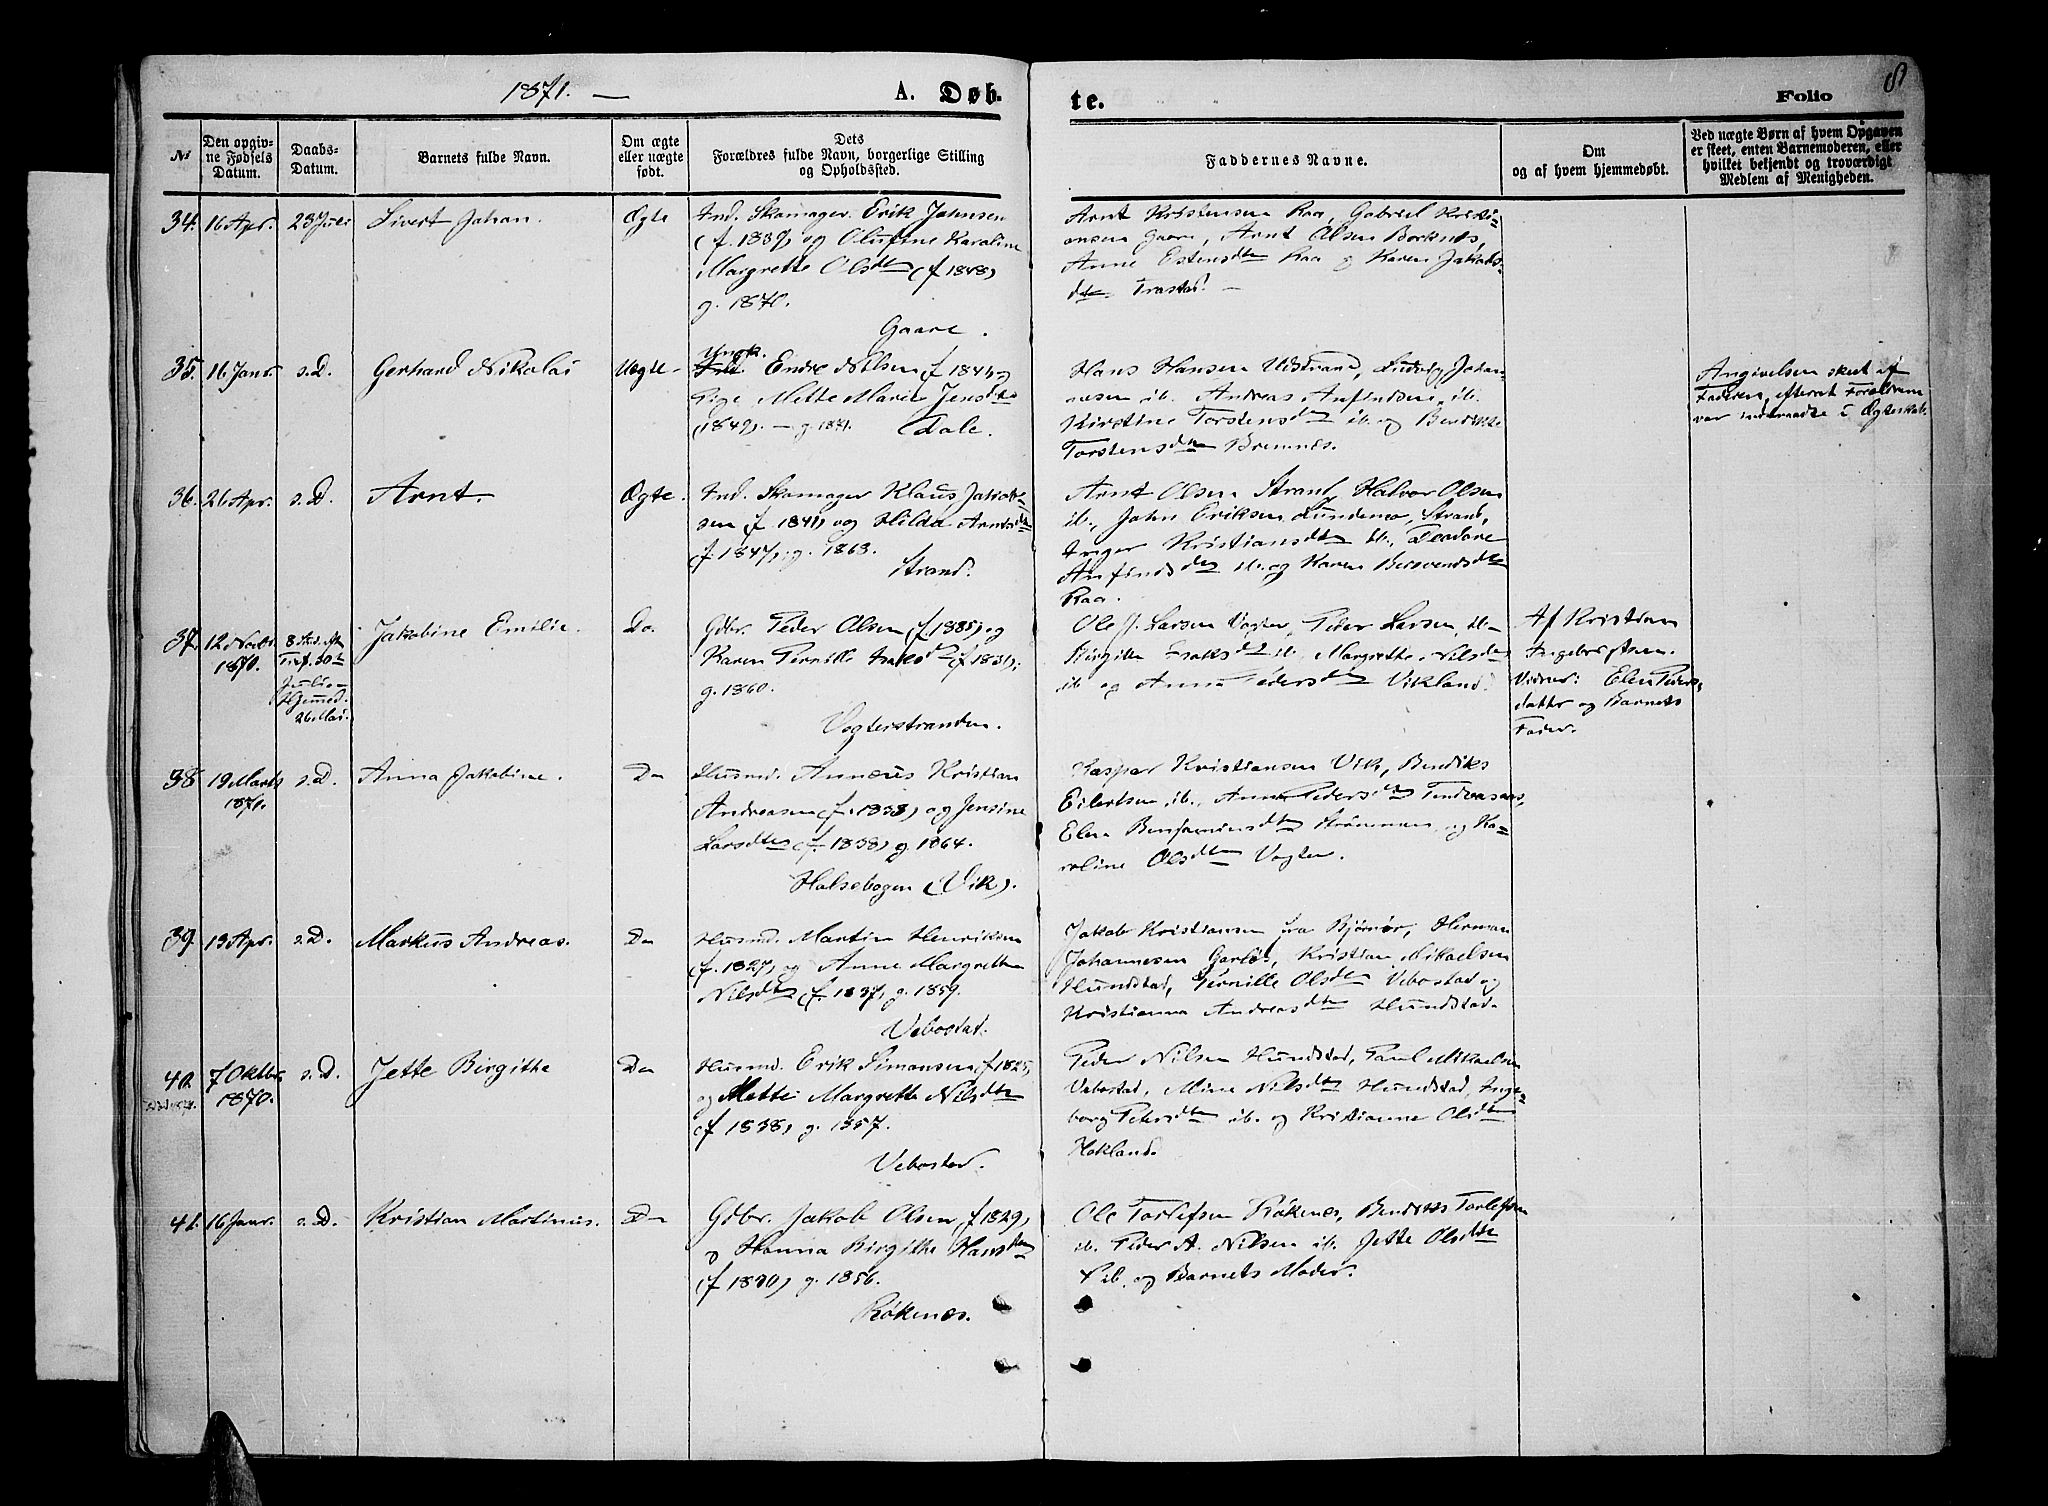 1871. —
A. Døb-
te.
Folio
8
№
Den opgiv-
ne Fødsels
Datum.
Daabs-
Datum.
Barnets fulde Navn.
Om ægte
eller uægte
født.
Dets
Forældres fulde Navn, borgerlige Stilling
og Opholdssted.
Faddernes Navne.
Om
og af hvem hjemmedøbt.
Ved uægte Børn af hvem Opgaven
er skeet, enten Barnemoderen, eller
hvilket bekjendt og troværdigt
Medlem af Menigheden.
34. 16 Apr. 23 Juli Sivert Johan. Ægte
Ind. Skomager Erik Johnsen
(f. 1839) og Olufine Karoline
Margrette Olsdtr (f 1848)
g. 1870.
Gaare.
Arnt Kristensen Raa, Gabriel Kristi-
ansen Gaare, Arnt Olsen Borknes,
Anne Estensdtr Raa og Karen Jakobs-
dtr Trastad. —
35. 16 Janr. s.D. Gerhard Nikolai Uægte
Ungk. Endre Nilsen (f 1846) og
Pige Mette Marie Jensdtr
(1849). — g. 1871. Dale.
Hans Hansen Udstrand, Ludvig Johan-
nesen ib. Andreas Anfindsen, ib.
Kirstine Torstensdtr ib. og Bendikte
Torstensdtr Bremnes.
Angivelsen skeet af
Faderen, efterat Forældrene
var indtraadte i Ægteskab.
36. 26 Apr. s.D. Arnt. Ægte.
Ind. Skomager Klaus Jakob-
sen (f 1841) og Hilda Arntsdtr
(f. 1847), g. 1868.
Strand.
Arnt Olsen Strand, Halvor Olsen
ib., John Eriksen Lundemo, Strand,
Inger Kristiansdtr ib., Teodore
Anfindsdtr ib. og Karen Bersvendsdtr
Raa.
37. 12 Novbr. 1870. Jakobine Emilie. Do.
30te
Juli —
Hjemmed.
26 Mai.
Gdbr. Peder Olsen (f. 1835) og
Karen Pernille Isaksdtr (f 1831);
g. 1860.
Vogterstranden.
Ole J. Larsen Vogter, Peder Larsen, ib.
Birgitte Isaksdtr ib. Margrethe Nilsdtr
ib og Anna Pedersdtr Vikland.
Af Kristian
Ingebrigtsen.
Vidner: Elen Peders-
datter og Barnets
Fader.
38 19 Marts 1871. s.D. Anna Jakobine. Do
Husmd. Annæus Kristian
Andreasen (f. 1838) og Jensine
Larsdtr (f 1838) g. 1864.
Halsebogen (Vik).
Kaspar Kristiansen Vik, Bendiks
Eilertsen, ib., Anne Pedersdtr
Elen Benjaminsdtr og Ka-
roline Olsdtr Vogter.
39. 13 Apr. s.D. Markus Andreas. Do
Husmd. Martin Henriksen
(f. 1827) og Anne Margrethe
Nilsdtr (f. 1837) g. 1859.
Vebostat.
Jakob Kristiansen fra Bjørnør, Herman
Johannesen Kristian Mikaelsen
Hundstad, Pernille Olsdtr Vebostad og
Kristianna Andreasdtr Hundstad.
40. 7 Oktbr. 1870. s.D. Jette Birgitte Do
Husmd. Erik Simonsen (f 1825)
og Mette Margrette Nilsdtr
(f 1838), g. 1857.
Vebostad.
Peder Nilsen Hundstad, Paul Mikaelsen
Vebostad, Mine Nilsdtr Hundstad, Inge-
borg Pedersdtr ib. og Kristianne Olsdtr
Hokland.
41. 16 Janr. s.D. Kristian Martinus. Do
Gdbr. Jakob Olsen (f 1829)
og Hanna Birgitte Hansdtr
(f 1830) g. 1856.
Røkenes.
Ole Torlefsen Røkenes, Bendiks Torlefsen
ib. Peder A. Nilsen ib. Jette Olsdtr
ib. og Barnets Moder.